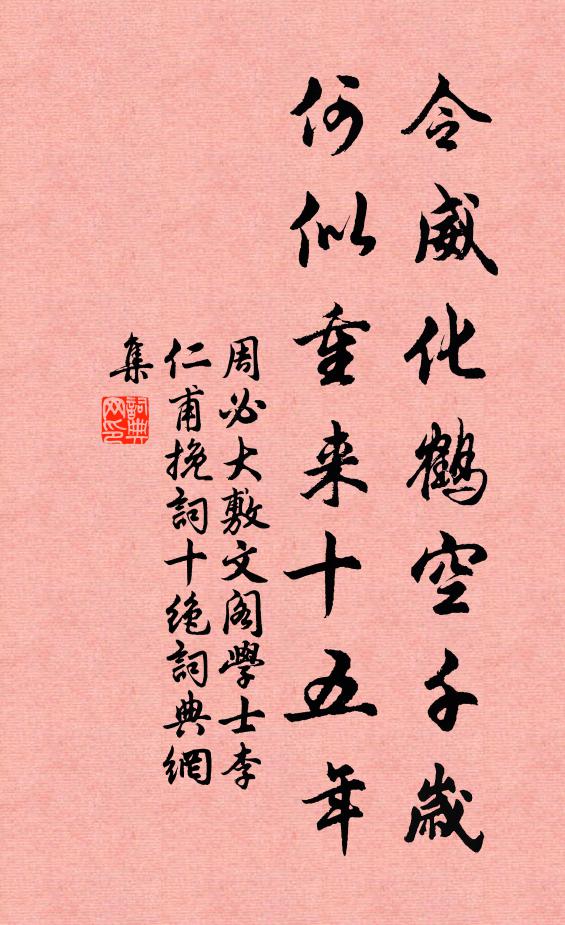 令威化鶴空千歲
何似重来十五年
周必大敷文阁學士李
仁甫挽詞十绝詞典網
集
詞典网印